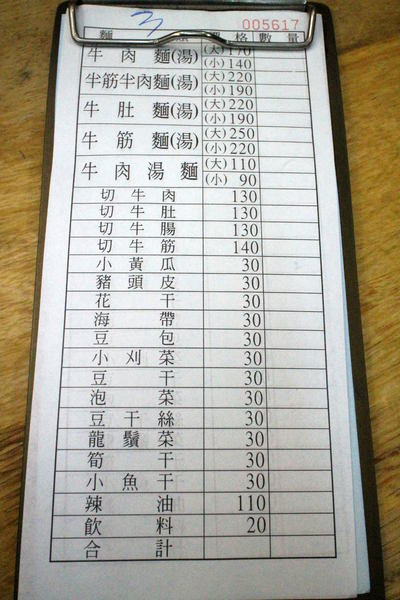 005617
麵 價格 數量
牛肉麵(湯) (大)170
(小)140
半筋半肉麵(湯) (大)220
(小)190
牛肚麵(湯) (大)220
(小)190
牛筋麵(湯) (大)250
(小)220
牛肉湯麵 (大)110
(小)90
切牛肉 130
切牛肚 130
切牛腸 130
切牛筋 140
小黃瓜 30
豬頭皮 30
花干 30
海帶 30
豆包 30
小刈菜 30
豆干 30
泡菜 30
豆干絲 30
龍鬚菜 30
筍干 30
小魚干 30
辣油 110
飲料 20
合計